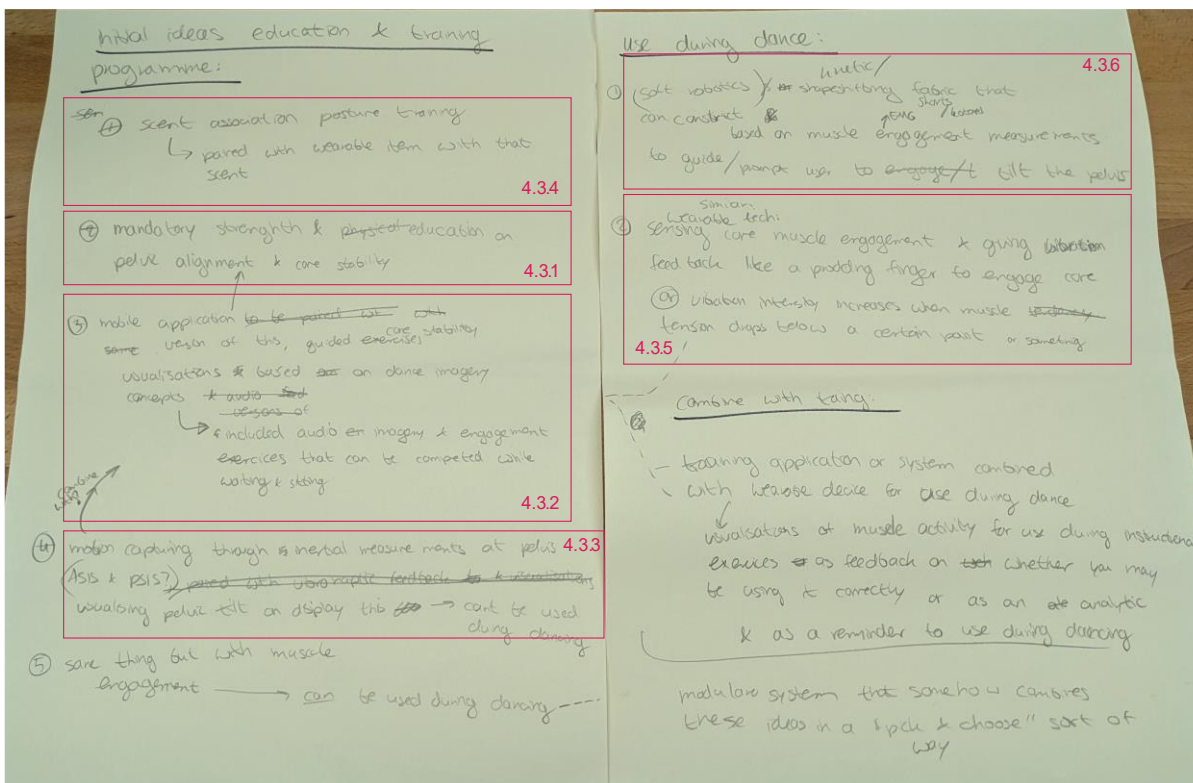 initial ideas education & training
programme:
① scent association posture traning
↳ paired with wearable item with that
scent
4.3.4
② mandatory strenghth & physical education on
pelvic alignment & core stability
4.3.1
③ mobile application to be paired with
some version of this, guided exercises, core stability
visualisations & based on dance imagery
concepts & audio
versions of
↳ included audio imagery & engagement
exercices that can be competed while
waiting & sitting
4.3.2
combine with?
④ motion capturing through inertial measurements at pelvis
4.3.3
(ASIS & PSIS?) paired with vibrohaptic feedback & visualisations
visualising pelvic tilt on display this → can't be used
during dancing
⑤ same thing but with muscle
engagement → can be used during dancing ----
use during dance:
4.3.6
kinetic/
① (soft robotics) shapeshifting fabric that
can constrict
shorts
EMG
based on muscle engagement measurements
to guide/prompt user to engage/t tilt the pelvis
similar:
wearable tech:
② sensing core muscle engagement & giving vibration
feedback like a prodding finger to engage core
(or) vibation intensity increases when muscle
tension drops below a certain point or something
4.3.5
combine with taing:
training application or system combined
with wearable device for use during dance
↓
visualisations of muscle activity for use during instructional
exercices as feedback on whether you may
be using it correctly or as an analytic
& as a reminder to use during dancing
modulare system that somehow combines
these ideas in a "pick & choose" sort of
way